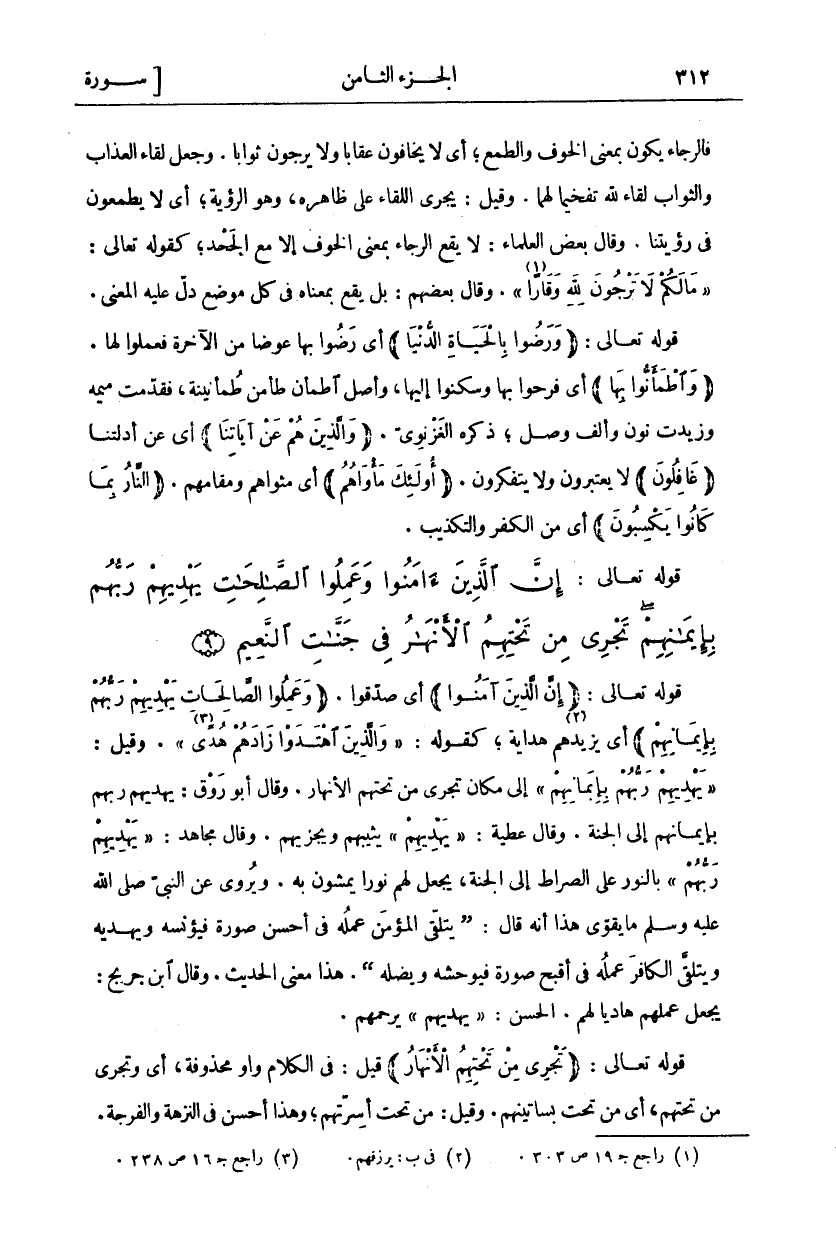 ٣١٢ الجزء الثامن [ سورة
فالرجاء يكون بمعنى الخوف والطمع؛ أى لا يخافون عقابا ولا يرجون ثوابا . وجعل لقاء العذاب
والثواب لقاء لله تفخيما لهما . وقيل : يجرى اللقاء على ظاهره، وهو الرؤية؛ أى لا يطمعون
فى رؤيتنا . وقال بعض العلماء : لا يقع الرجاء بمعنى الخوف إلا مع الجَحْد؛ كقوله تعالى :
« مَالَكُمْ لَا تَرْجُونَ لِلّٰهِ وَقَارًا (١) » . وقال بعضهم : بل يقع بمعناه فى كل موضع دلّ عليه المعنى .
قوله تعالى : ﴿ وَرَضُوا بِالْحَيَاةِ الدُّنْيَا ﴾ أى رَضُوا بها عوضا من الآخرة فعملوا لها .
﴿ وَٱطْمَأَنُّوا بِهَا ﴾ أى فرحوا بها وسكنوا إليها، وأصل ٱطمأن طأمن طُمأنينة، فقدّمت ميمه
وزيدت نون وألف وصل ؛ ذكره الغَزْنوىّ . ﴿ وَالَّذِينَ هُمْ عَنْ آيَاتِنَا ﴾ أى عن أدلتنا
﴿ غَافِلُونَ ﴾ لا يعتبرون ولا يتفكرون . ﴿ أُولَئِكَ مَأْوَاهُمُ ﴾ أى مثواهم ومقامهم . ﴿ النَّارُ بِمَا
كَانُوا يَكْسِبُونَ ﴾ أى من الكفر والتكذيب .
قوله تعالى : إِنَّ ٱلَّذِينَ ءَامَنُوا وَعَمِلُوا ٱلصَّـٰلِحَـٰتِ يَهْدِيهِمْ رَبُّهُم
بِإِيمَـٰنِهِمْ ۖ تَجْرِى مِن تَحْتِهِمُ ٱلْأَنْهَـٰرُ فِى جَنَّـٰتِ ٱلنَّعِيمِ ﴿٩﴾
قوله تعالى : ﴿ إِنَّ الَّذِينَ آمَنُوا ﴾ أى صدّقوا . ﴿ وَعَمِلُوا الصَّالِحَاتِ يَهْدِيهِمْ رَبُّهُمْ
بِإِيمَانِهِمْ ﴾ أى يزيدهم (٢) هداية ؛ كقوله : « وَالَّذِينَ ٱهْتَدَوْا زَادَهُمْ هُدًى (٣) » . وقيل :
« يَهْدِيهِمْ رَبُّهُمْ بِإِيمَانِهِمْ » إلى مكان تجرى من تحتهم الأنهار . وقال أبو رَوْق : يهديهم ربهم
بإيمانهم إلى الجنة . وقال عطية : « يَهْدِيهِمْ » يثيبهم ويجزيهم . وقال مجاهد : « يَهْدِيهِمْ
رَبُّهُمْ » بالنور على الصراط إلى الجنة، يجعل لهم نورا يمشون به . ويُروى عن النبىّ صلى الله
عليه وسلم ما يقوّى هذا أنه قال : ” يتلقّى المؤمنَ عملُه فى أحسن صورة فيؤنسه ويهديه
ويتلقَّى الكافرَ عملُه فى أقبح صورة فيوحشه ويضله “ . هذا معنى الحديث . وقال ٱبن جريج :
يجعل عملهم هاديا لهم . الحسن : « يهديهم » يرحمهم .
قوله تعالى : ﴿ تَجْرِى مِنْ تَحْتِهِمُ الْأَنْهَارُ ﴾ قيل : فى الكلام واو محذوفة، أى وتجرى
من تحتهم، أى من تحت بساتينهم . وقيل : من تحت أسِرّتهم؛ وهذا أحسن فى النزهة والفرجة .
(١) راجع جـ ١٩ ص ٣٠٣ . (٢) فى ب : يرزقهم . (٣) راجع جـ ١٦ ص ٢٣٨ .